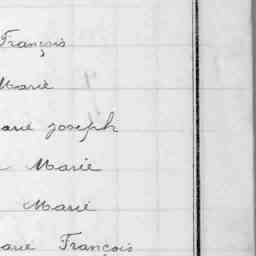 François
Marie
arie joseph
Marie
Marie
arie François